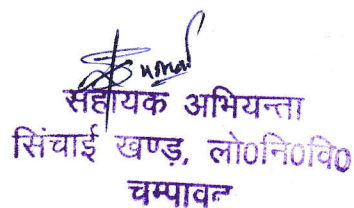 सहायक अभियन्ता
सिंचाई खण्ड, लो०नि०वि०
चम्पावत